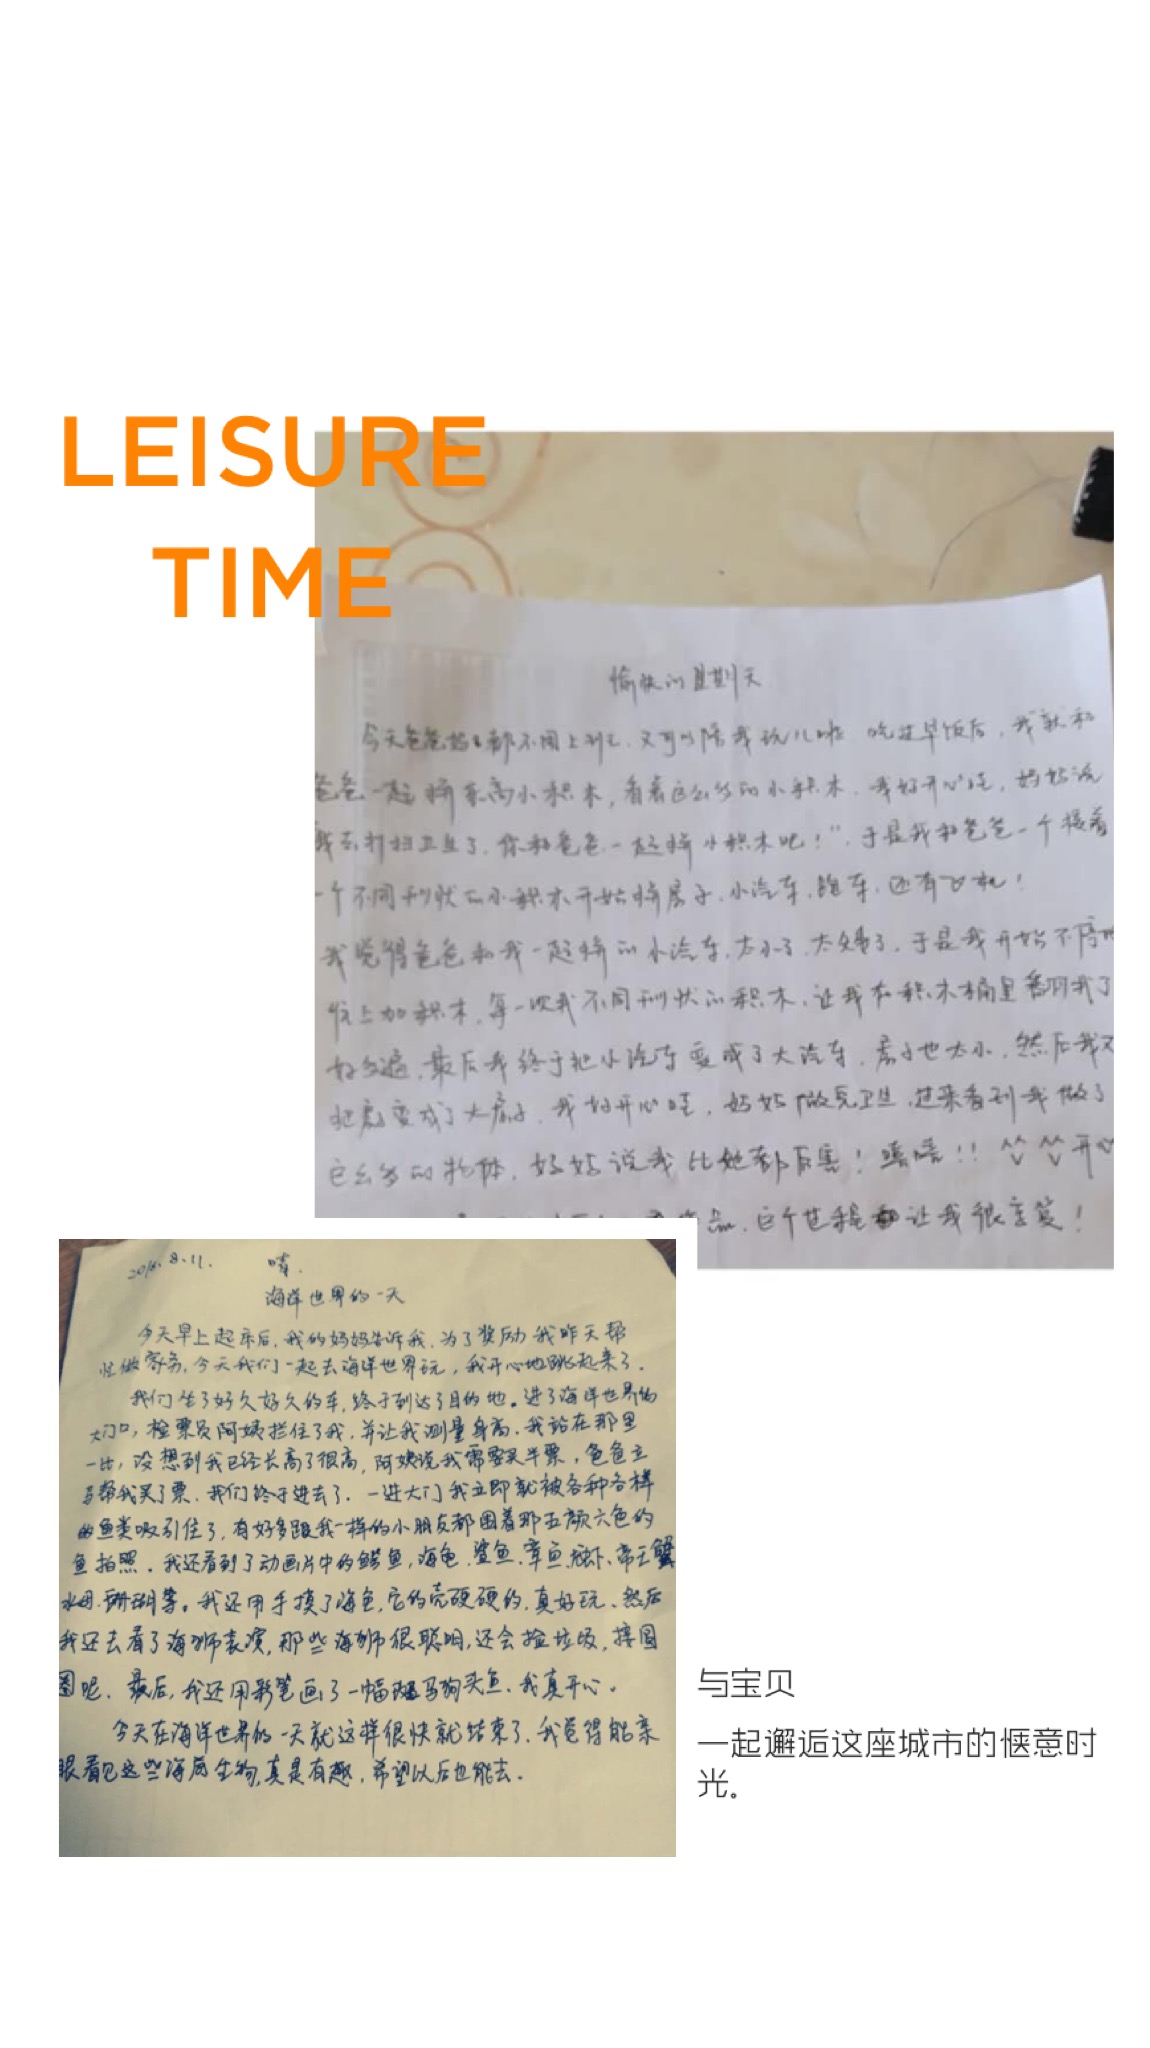 LEISURE
TIME
愉快的星期天
今天爸爸妈妈都不用上班,又可以陪我玩儿啦 吃过早饭后,我就和
爸爸一起拼乐高小积木,看着这么多的小积木,我好开心哇,妈妈说
我去打扫卫生了,你和爸爸一起拼小积木吧!”,于是我和爸爸一个接着
一个不同形状的小积木开始拼房子,小汽车,跑车,还有飞机!
我觉得爸爸和我一起拼的小汽车,太小了,太矮了,于是我开始不停地
往上加积木,每一次找不同形状的积木,让我在积木桶里翻找了
好多遍,最后我终于把小汽车变成了大汽车,房子也太小,然后我又
把房变成了大房子,我好开心哇,妈妈做完卫生,过来看到我做了
这么多的物体,妈妈说我比她都厉害!嘻嘻!!^^ ^^开心
品,这个过程让我很享受!
2016.8.11. 晴.
海洋世界的一天
今天早上起床后,我的妈妈告诉我,为了奖励我昨天帮
忙做家务,今天我们一起去海洋世界玩,我开心地跳起来了.
我们坐了好久好久的车,终于到达了目的地。进了海洋世界的
大门口,检票员阿姨拦住了我,并让我测量身高,我站在那里
一比,没想到我已经长高了很高,阿姨说我需要买半票,爸爸立
马帮我买了票,我们终于进去了.一进大门我立即就被各种各样
的鱼类吸引住了,有好多跟我一样的小朋友都围着那五颜六色的
鱼拍照.我还看到了动画片中的鳄鱼,海龟,鲨鱼,章鱼,龙虾、帝王蟹
水母.珊瑚等。我还用手摸了海龟,它的壳硬硬的,真好玩、然后
我还去看了海狮表演,那些海狮很聪明,还会捡垃圾,接圆
圈呢.最后,我还用彩笔画了一幅斑马狗头鱼、我真开心。
今天在海洋世界的一天就这样很快就结束了.我觉得能亲
眼看见这些海底生物,真是有趣,希望以后也能去.
与宝贝
一起邂逅这座城市的惬意时
光。